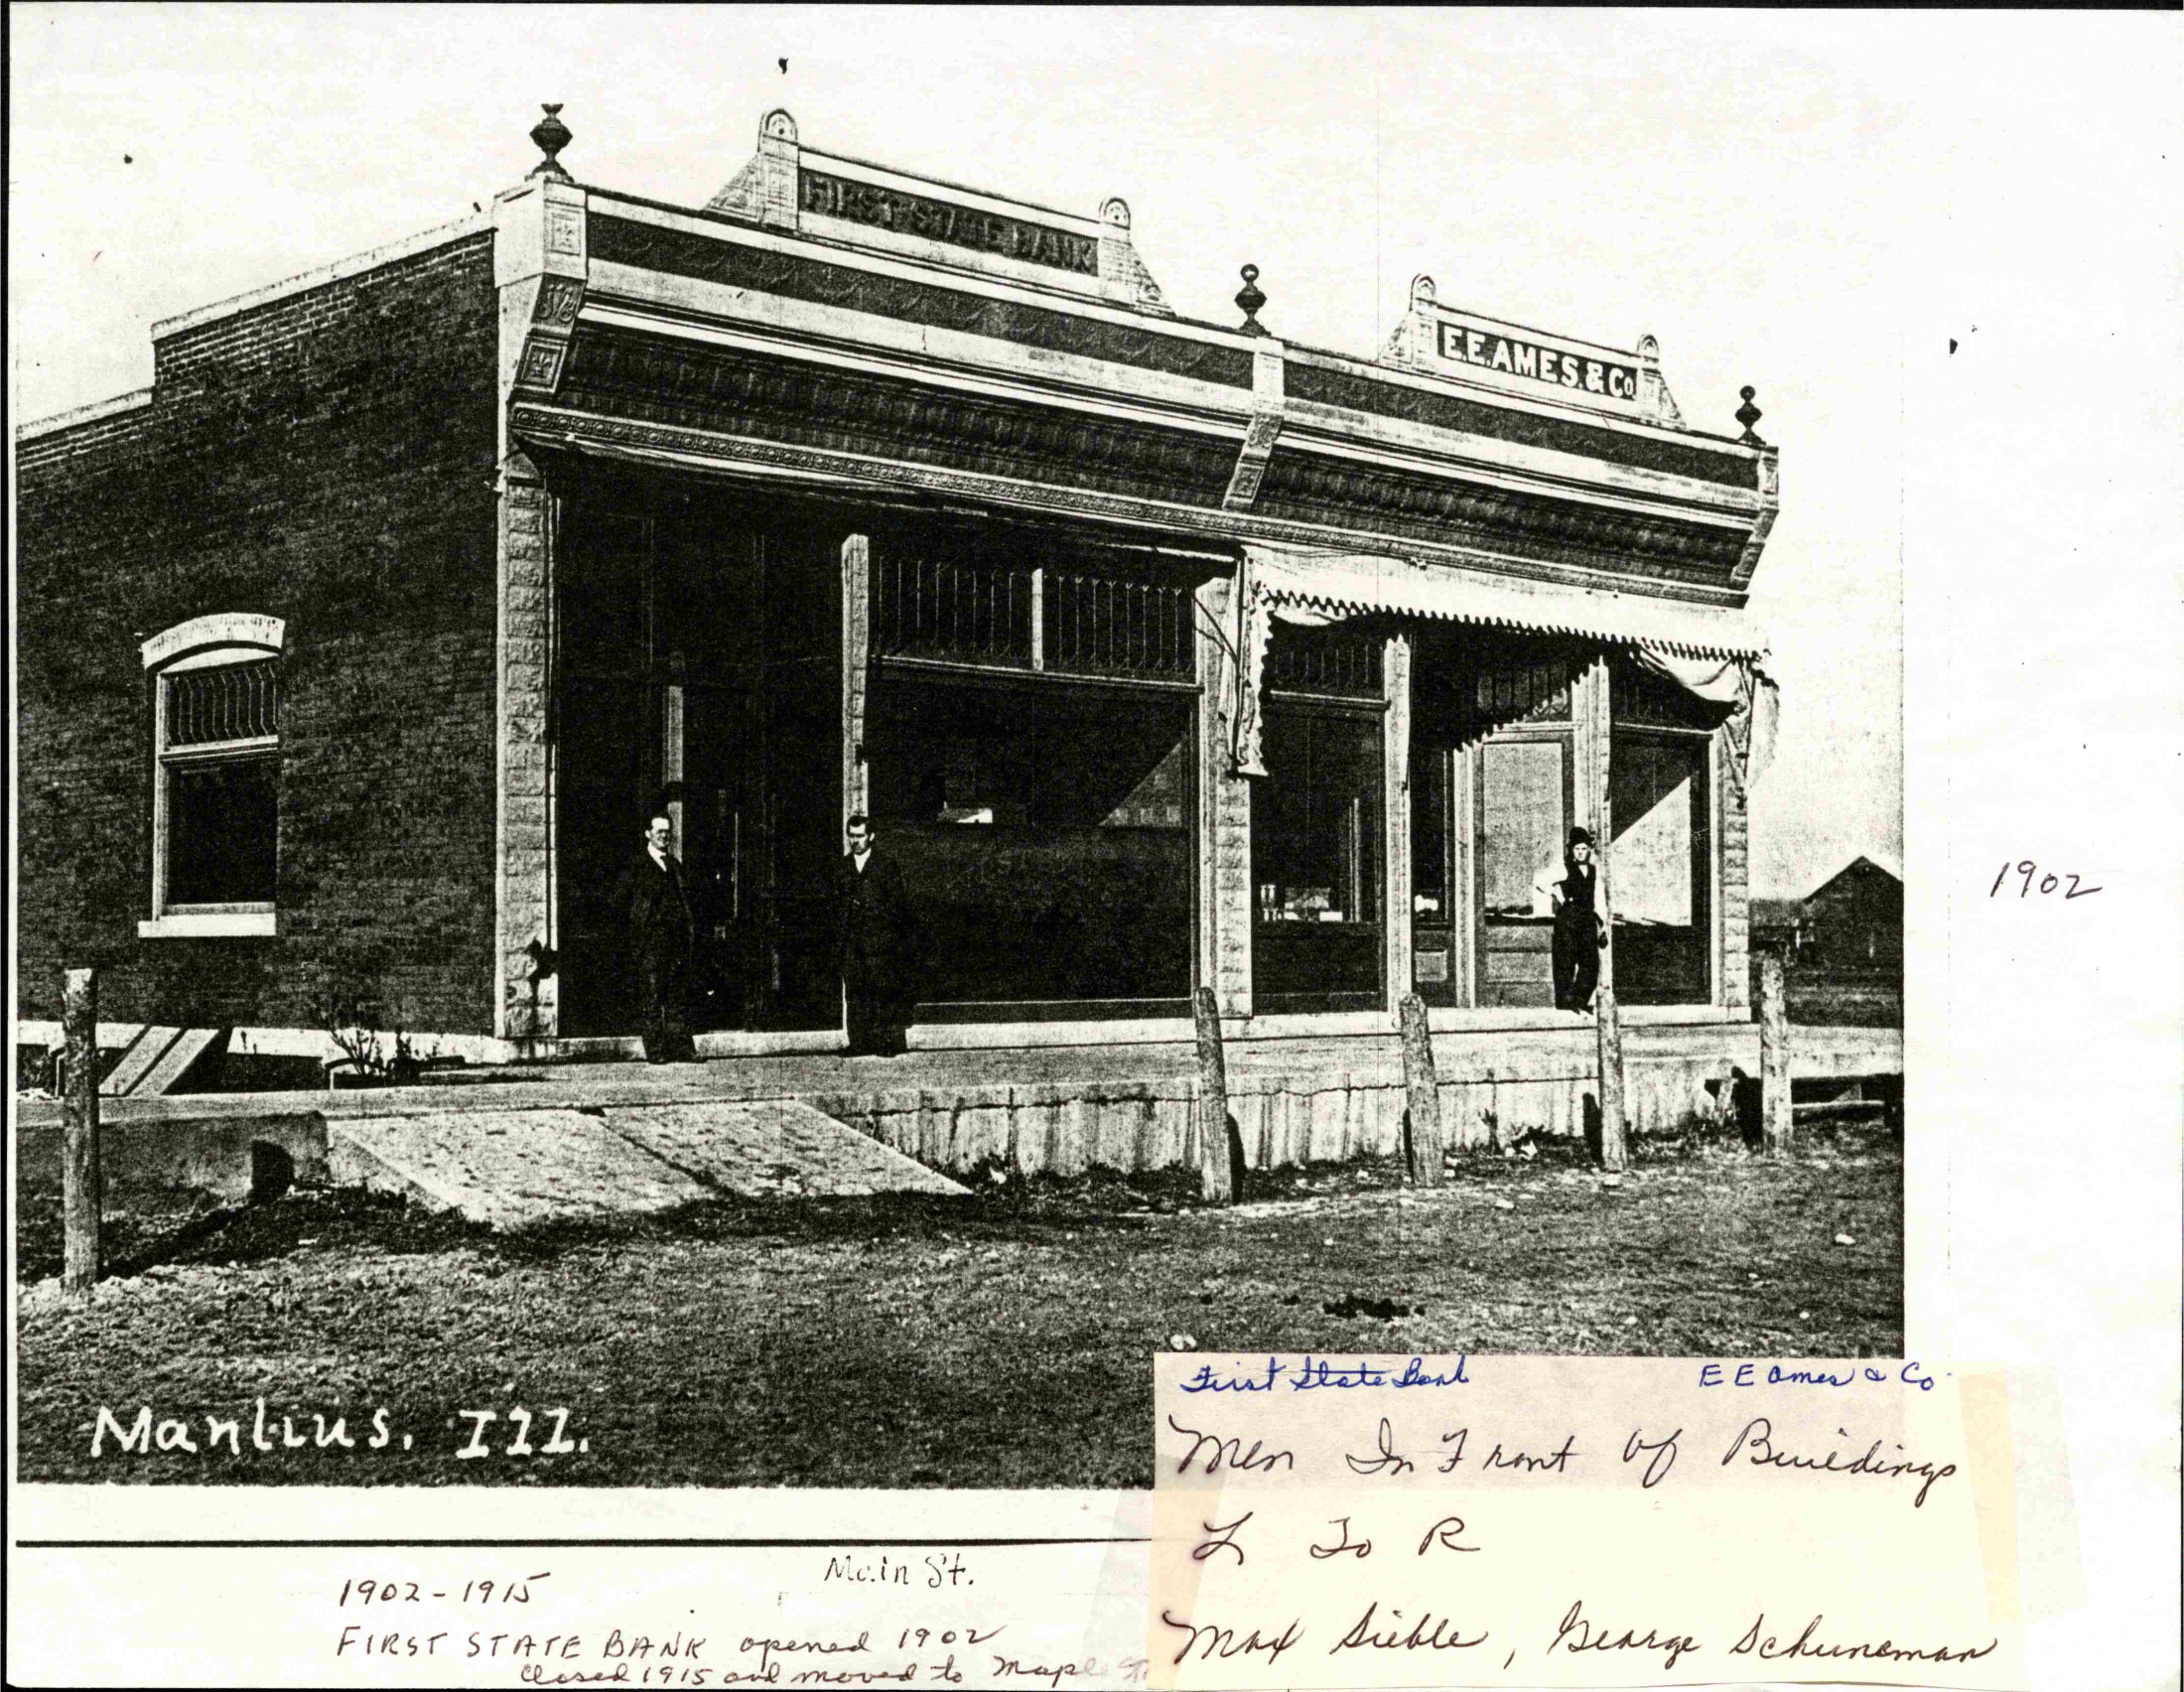 FIRST STATE BANK
E.E.AMES.&Co
1902
Manlius, Ill.
First State Bank E E Ames & Co
Men In Front Of Buildings
L To R
Max Sieble, George Schuneman
Main St.
1902-1915
FIRST STATE BANK opened 1902
closed 1915 and moved to Maple St.